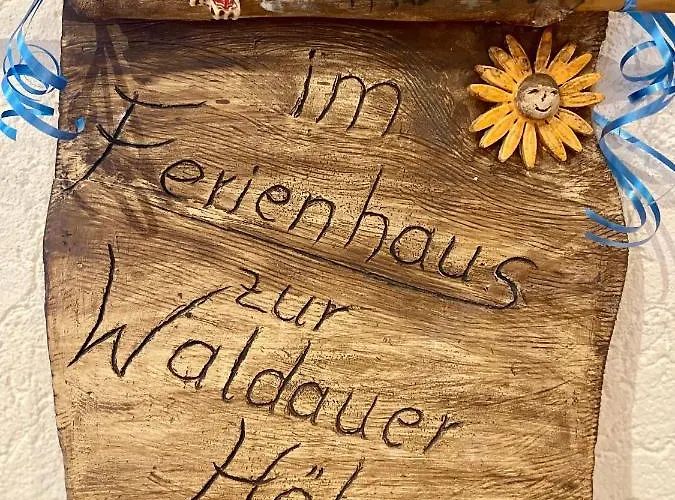 im
Ferienhaus
zur
Waldauer